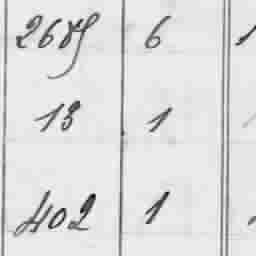 2685 6 1
13 1
402 1